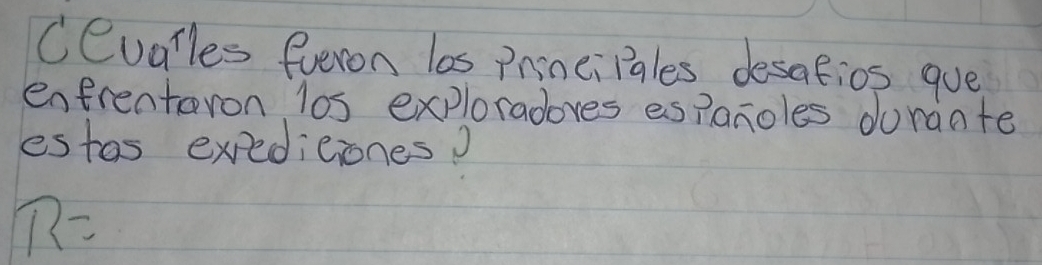 ¿Cuales fueron los principales desafios que
enfrentaron los exploradores españoles durante
estas expediciones?
R=